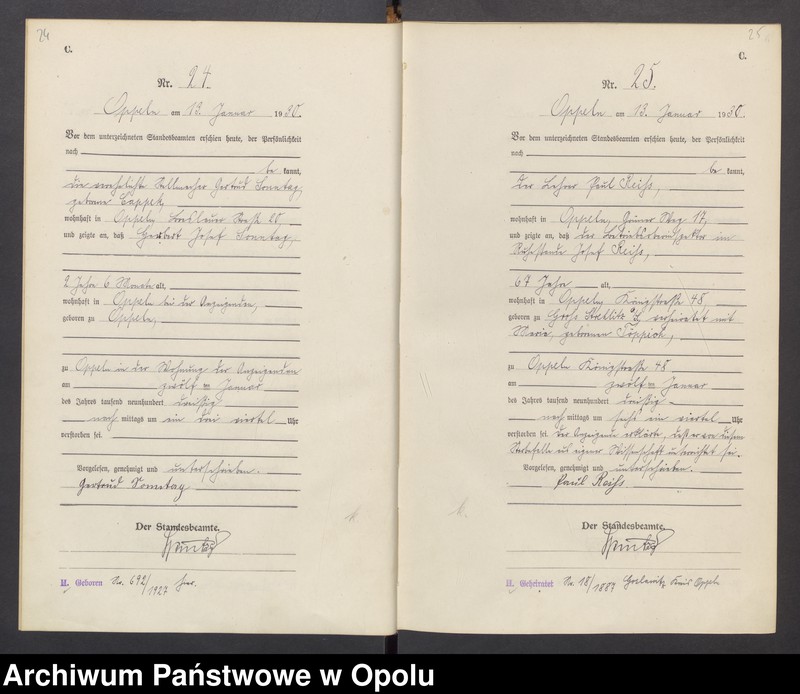 24
C.
Nr. 24.
Oppeln am 13. Januar 1930.
Vor dem unterzeichneten Standesbeamten erschien heute, der Persönlichkeit
nach
be kannt,
die verehelichte Stellmacher Gertrud Sonntag,
geborene
wohnhaft in Oppeln, Breslauer Straße 20,
und zeigte an, daß Herbert Josef Sonntag,
2 Jahre 6 Monate alt,
wohnhaft in Oppeln bei der Anzeigenden,
geboren zu Oppeln,
zu Oppeln in der Wohnung der Anzeigenden
am zwölften Januar
des Jahres tausend neunhundert dreißig
nach mittags um ein drei viertel Uhr
verstorben sei.
Vorgelesen, genehmigt und unterschrieben.
Gertrud Sonntag
Der Standesbeamte.
II. Geboren Nr. 692/1927 hier.
25
C.
Nr. 25.
Oppeln am 13. Januar 1930.
Vor dem unterzeichneten Standesbeamten erschien heute, der Persönlichkeit
nach
be kannt,
der Lehrer Paul Reihs,
wohnhaft in Oppeln, Weg 17,
und zeigte an, daß der im
Ruhestande Josef Reihs,
67 Jahre alt,
wohnhaft in Oppeln, Königstraße 48,
geboren zu Groß Strehlitz O/S, verheiratet mit
Marie, geborenen
zu Oppeln Königstraße 48
am zwölften Januar
des Jahres tausend neunhundert dreißig
nach mittags um sechs ein viertel Uhr
verstorben sei. Der Anzeigende erklärte, daß er von diesem
Sterbefalle aus eigener Wissenschaft unterrichtet sei.
Vorgelesen, genehmigt und unterschrieben.
Paul Reihs.
Der Standesbeamte.
II. Geheiratet Nr. 18/1889 Kreis Oppeln
Archiwum Państwowe w Opolu